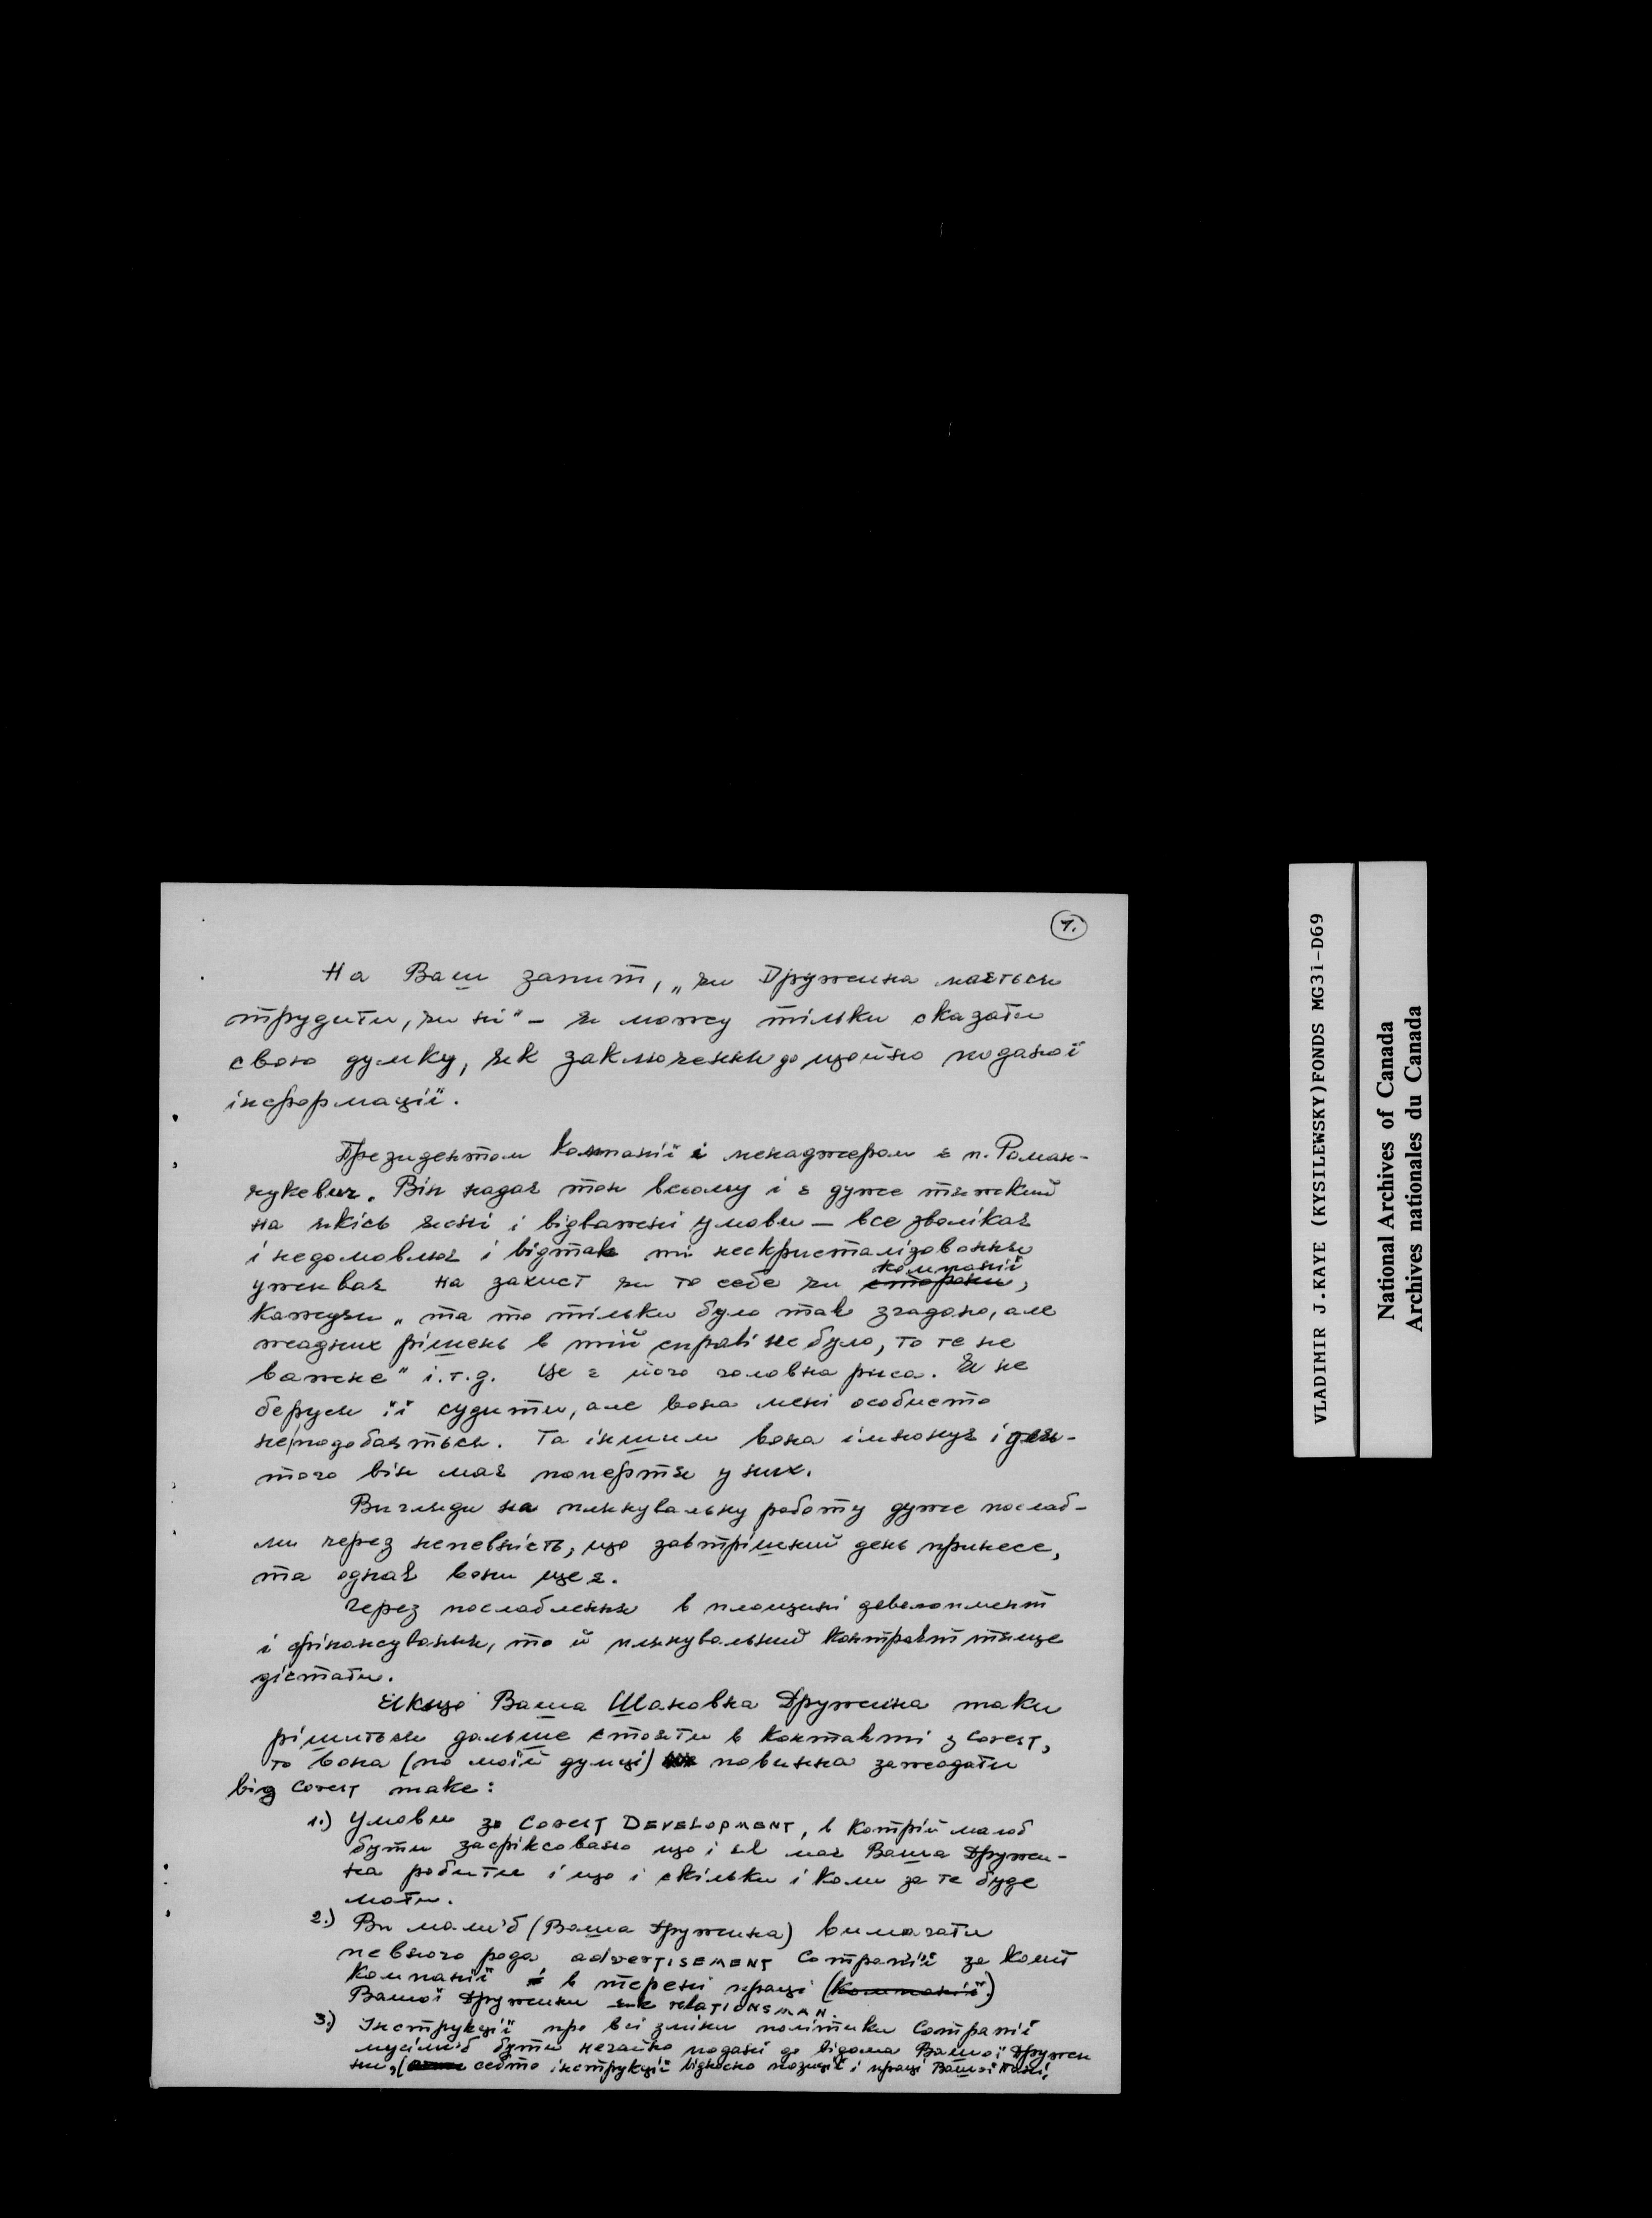 1.
На Ваш запит, „чи Дружина мається
трудити, чи ні" – я можу тільки сказати
свою думку, як заключення до щойно поданої
інформації.
Президентом компанії і менаджером є п. Роман-
чукевич. Він надає тон всьому і є дуже тяжкий
на якісь ясні і відважні умови – все зволікає
і недомовлює і відтак ті нескристалізовання
уживає на захист чи то себе чи сторони, компанії
кажучи „та то тільки було так згадано, але
жадних рішень в тій справі не було, то те не
важне" і.т.д. Це є його головна риса. Я не
беруся її судити, але вона мені особисто
не подобається. Та іншим вона імпонує і для-
того він має попертя у них.
Вигляди на плянувальну роботу дуже послаб-
ли через непевність, що завтрішний день принесе,
та однак вони ще є.
Через послаблення в площині девелопмент
і фінансування, то й плянувальний контракт тяжще
дістати.
Якщо Ваша Шановна Дружина таки
рішиться дальше стояти в контакті з Corest,
то вона (по моїй думці) повинна зажадати
від Corest таке:
1.) Умови зо Corest DEVELOPMENT, в котрій малоб
бути зафіксовано що і як має Ваша Дружи-
на робити і що і скільки і коли за те буде
мати.
2.) Ви мали'б (Ваша Дружина) вимагати
певного рода advertisement Companiї за кошт
Компанії і в терені праці (Компанії.)
Вашої Дружини як relationsman.
3.) Інструкції про всі зміни політики Companiї
мусіли'б бути негайно подані до відома Вашої Дружи
ни, (себто інструкції відносно позиції і праці Вашої Пані.
VLADIMIR J.KAYE (KYSILEWSKY)FONDS MG31-D69
National Archives of Canada
Archives nationales du Canada